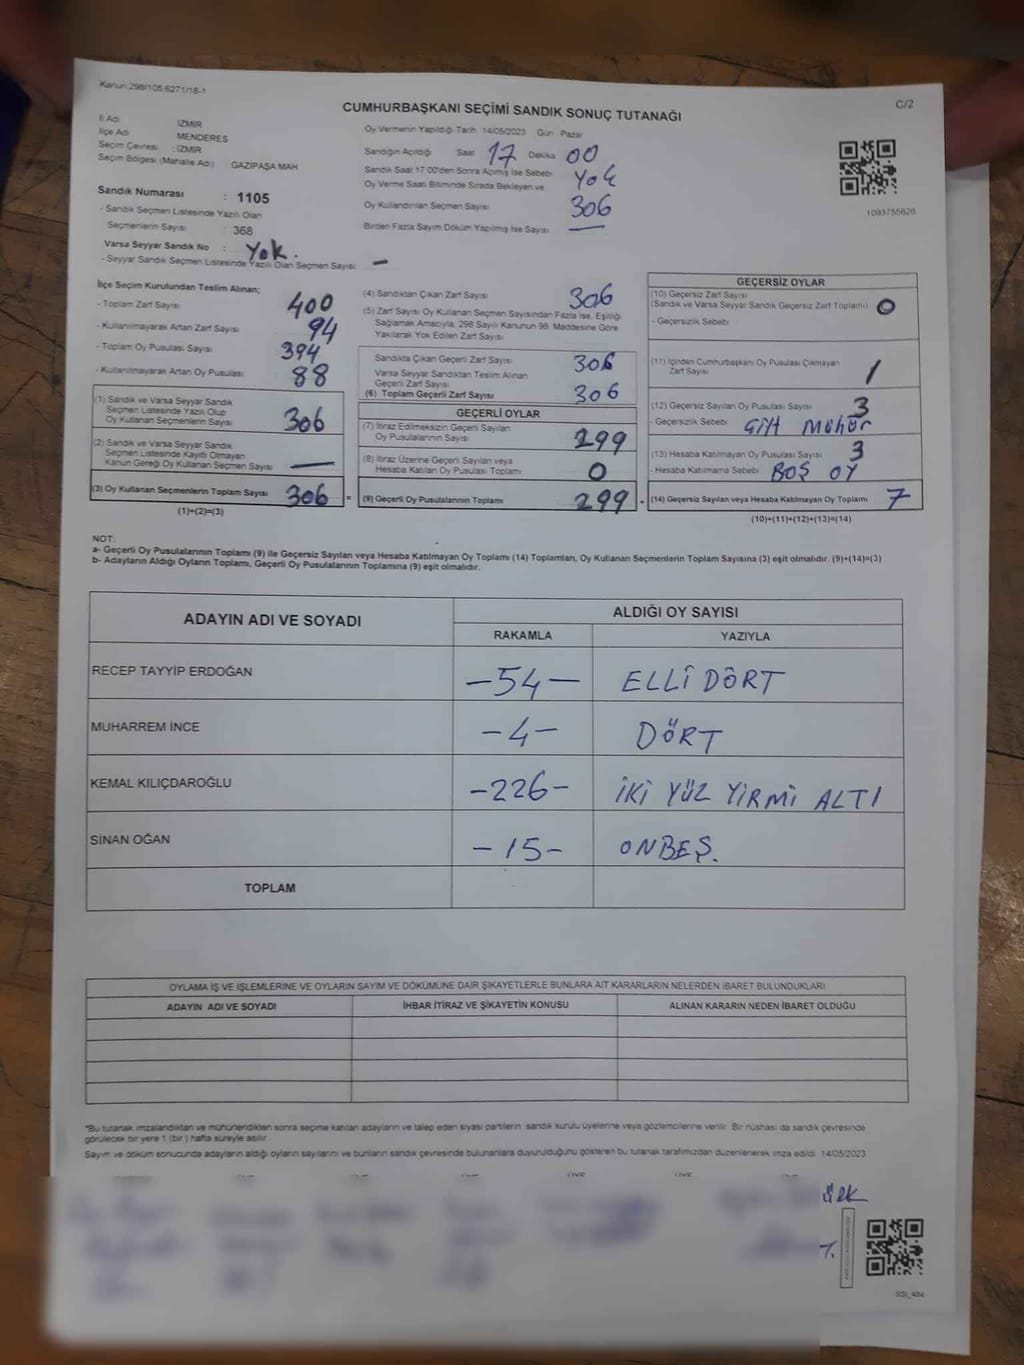 Kanun:298/105.6271/18-1
C/2
CUMHURBAŞKANI SEÇİMİ SANDIK SONUÇ TUTANAĞI
İl Adı : İZMİR
İlçe Adı MENDERES
Seçim Çevresi : İZMİR
Seçim Bölgesi (Mahalle Adı) GAZİPAŞA MAH
Sandık Numarası : 1105
- Sandık Seçmen Listesinde Yazılı Olan
Seçmenlerin Sayısı : 368
Varsa Seyyar Sandık No : Yok.
- Seyyar Sandık Seçmen Listesinde Yazılı Olan Seçmen Sayısı —
Oy Vermenin Yapıldığı Tarih 14/05/2023 Gün Pazar
Sandığın Açıldığı Saat 17 Dakika 00
Sandık Saat 17:00'den Sonra Açılmış İse Sebebi Yok
Oy Verme Saati Bitiminde Sırada Bekleyen ve
Oy Kullandırılan Seçmen Sayısı 306
Birden Fazla Sayım Döküm Yapılmış İse Sayısı —
1093755626
İlçe Seçim Kurulundan Teslim Alınan;
- Toplam Zarf Sayısı 400
- Kullanılmayarak Artan Zarf Sayısı 94
- Toplam Oy Pusulası Sayısı 394
- Kullanılmayarak Artan Oy Pusulası 88
(1) Sandık ve Varsa Seyyar Sandık
Seçmen Listesinde Yazılı Olup
Oy Kullanan Seçmenlerin Sayısı 306
(2) Sandık ve Varsa Seyyar Sandık
Seçmen Listesinde Kayıtlı Olmayan
Kanun Gereği Oy Kullanan Seçmen Sayısı —
(3) Oy Kullanan Seçmenlerin Toplam Sayısı 306 =
(1)+(2)=(3)
(4) Sandıktan Çıkan Zarf Sayısı 306
(5) Zarf Sayısı Oy Kullanan Seçmen Sayısından Fazla İse, Eşitliği
Sağlamak Amacıyla, 298 Sayılı Kanunun 98. Maddesine Göre
Yakılarak Yok Edilen Zarf Sayısı
Sandıkta Çıkan Geçerli Zarf Sayısı 306
Varsa Seyyar Sandıktan Teslim Alınan
Geçerli Zarf Sayısı
(6) Toplam Geçerli Zarf Sayısı 306
GEÇERLİ OYLAR
(7) İtiraz Edilmeksizin Geçerli Sayılan
Oy Pusulalarının Sayısı 299
(8) İtiraz Üzerine Geçerli Sayılan veya
Hesaba Katılan Oy Pusulası Toplamı 0
(9) Geçerli Oy Pusulalarının Toplamı 299
GEÇERSİZ OYLAR
(10) Geçersiz Zarf Sayısı
(Sandık ve Varsa Seyyar Sandık Geçersiz Zarf Toplamı) 0
- Geçersizlik Sebebi
(11) İçinden Cumhurbaşkanı Oy Pusulası Çıkmayan
Zarf Sayısı 1
(12) Geçersiz Sayılan Oy Pusulası Sayısı 3
- Geçersizlik Sebebi Gift Mühür
(13) Hesaba Katılmayan Oy Pusulası Sayısı 3
- Hesaba Katılmama Sebebi BOŞ OY
(14) Geçersiz Sayılan veya Hesaba Katılmayan Oy Toplamı 7
(10)+(11)+(12)+(13)=(14)
NOT:
a- Geçerli Oy Pusulalarının Toplamı (9) ile Geçersiz Sayılan veya Hesaba Katılmayan Oy Toplamı (14) Toplamları, Oy Kullanan Seçmenlerin Toplam Sayısına (3) eşit olmalıdır. (9)+(14)=(3)
b- Adayların Aldığı Oyların Toplamı, Geçerli Oy Pusulalarının Toplamına (9) eşit olmalıdır.
ADAYIN ADI VE SOYADI ALDIĞI OY SAYISI
RAKAMLA YAZIYLA
RECEP TAYYİP ERDOĞAN -54- ELLİ DÖRT
MUHARREM İNCE -4- DÖRT
KEMAL KILIÇDAROĞLU -226- İKİ YÜZ YİRMİ ALTI
SİNAN OĞAN -15- ONBEŞ.
TOPLAM
OYLAMA İŞ VE İŞLEMLERİNE VE OYLARIN SAYIM VE DÖKÜMÜNE DAİR ŞİKAYETLERLE BUNLARA AİT KARARLARIN NELERDEN İBARET BULUNDUKLARI
ADAYIN ADI VE SOYADI İHBAR İTİRAZ VE ŞİKAYETİN KONUSU ALINAN KARARIN NEDEN İBARET OLDUĞU
*Bu tutanak imzalandıktan ve mühürlendikten sonra seçime katılan adayların ve talep eden siyasi partilerin sandık kurulu üyelerine veya gözlemcilerine verilir. Bir nüshası da sandık çevresinde
görülecek bir yere 1 (bir) hafta süreyle asılır.
Sayım ve döküm sonucunda adayların aldığı oyların sayılarını ve bunların sandık çevresinde bulunanlara duyurulduğunu gösteren bu tutanak tarafımızdan düzenlenerek imza edildi. 14/05/2023